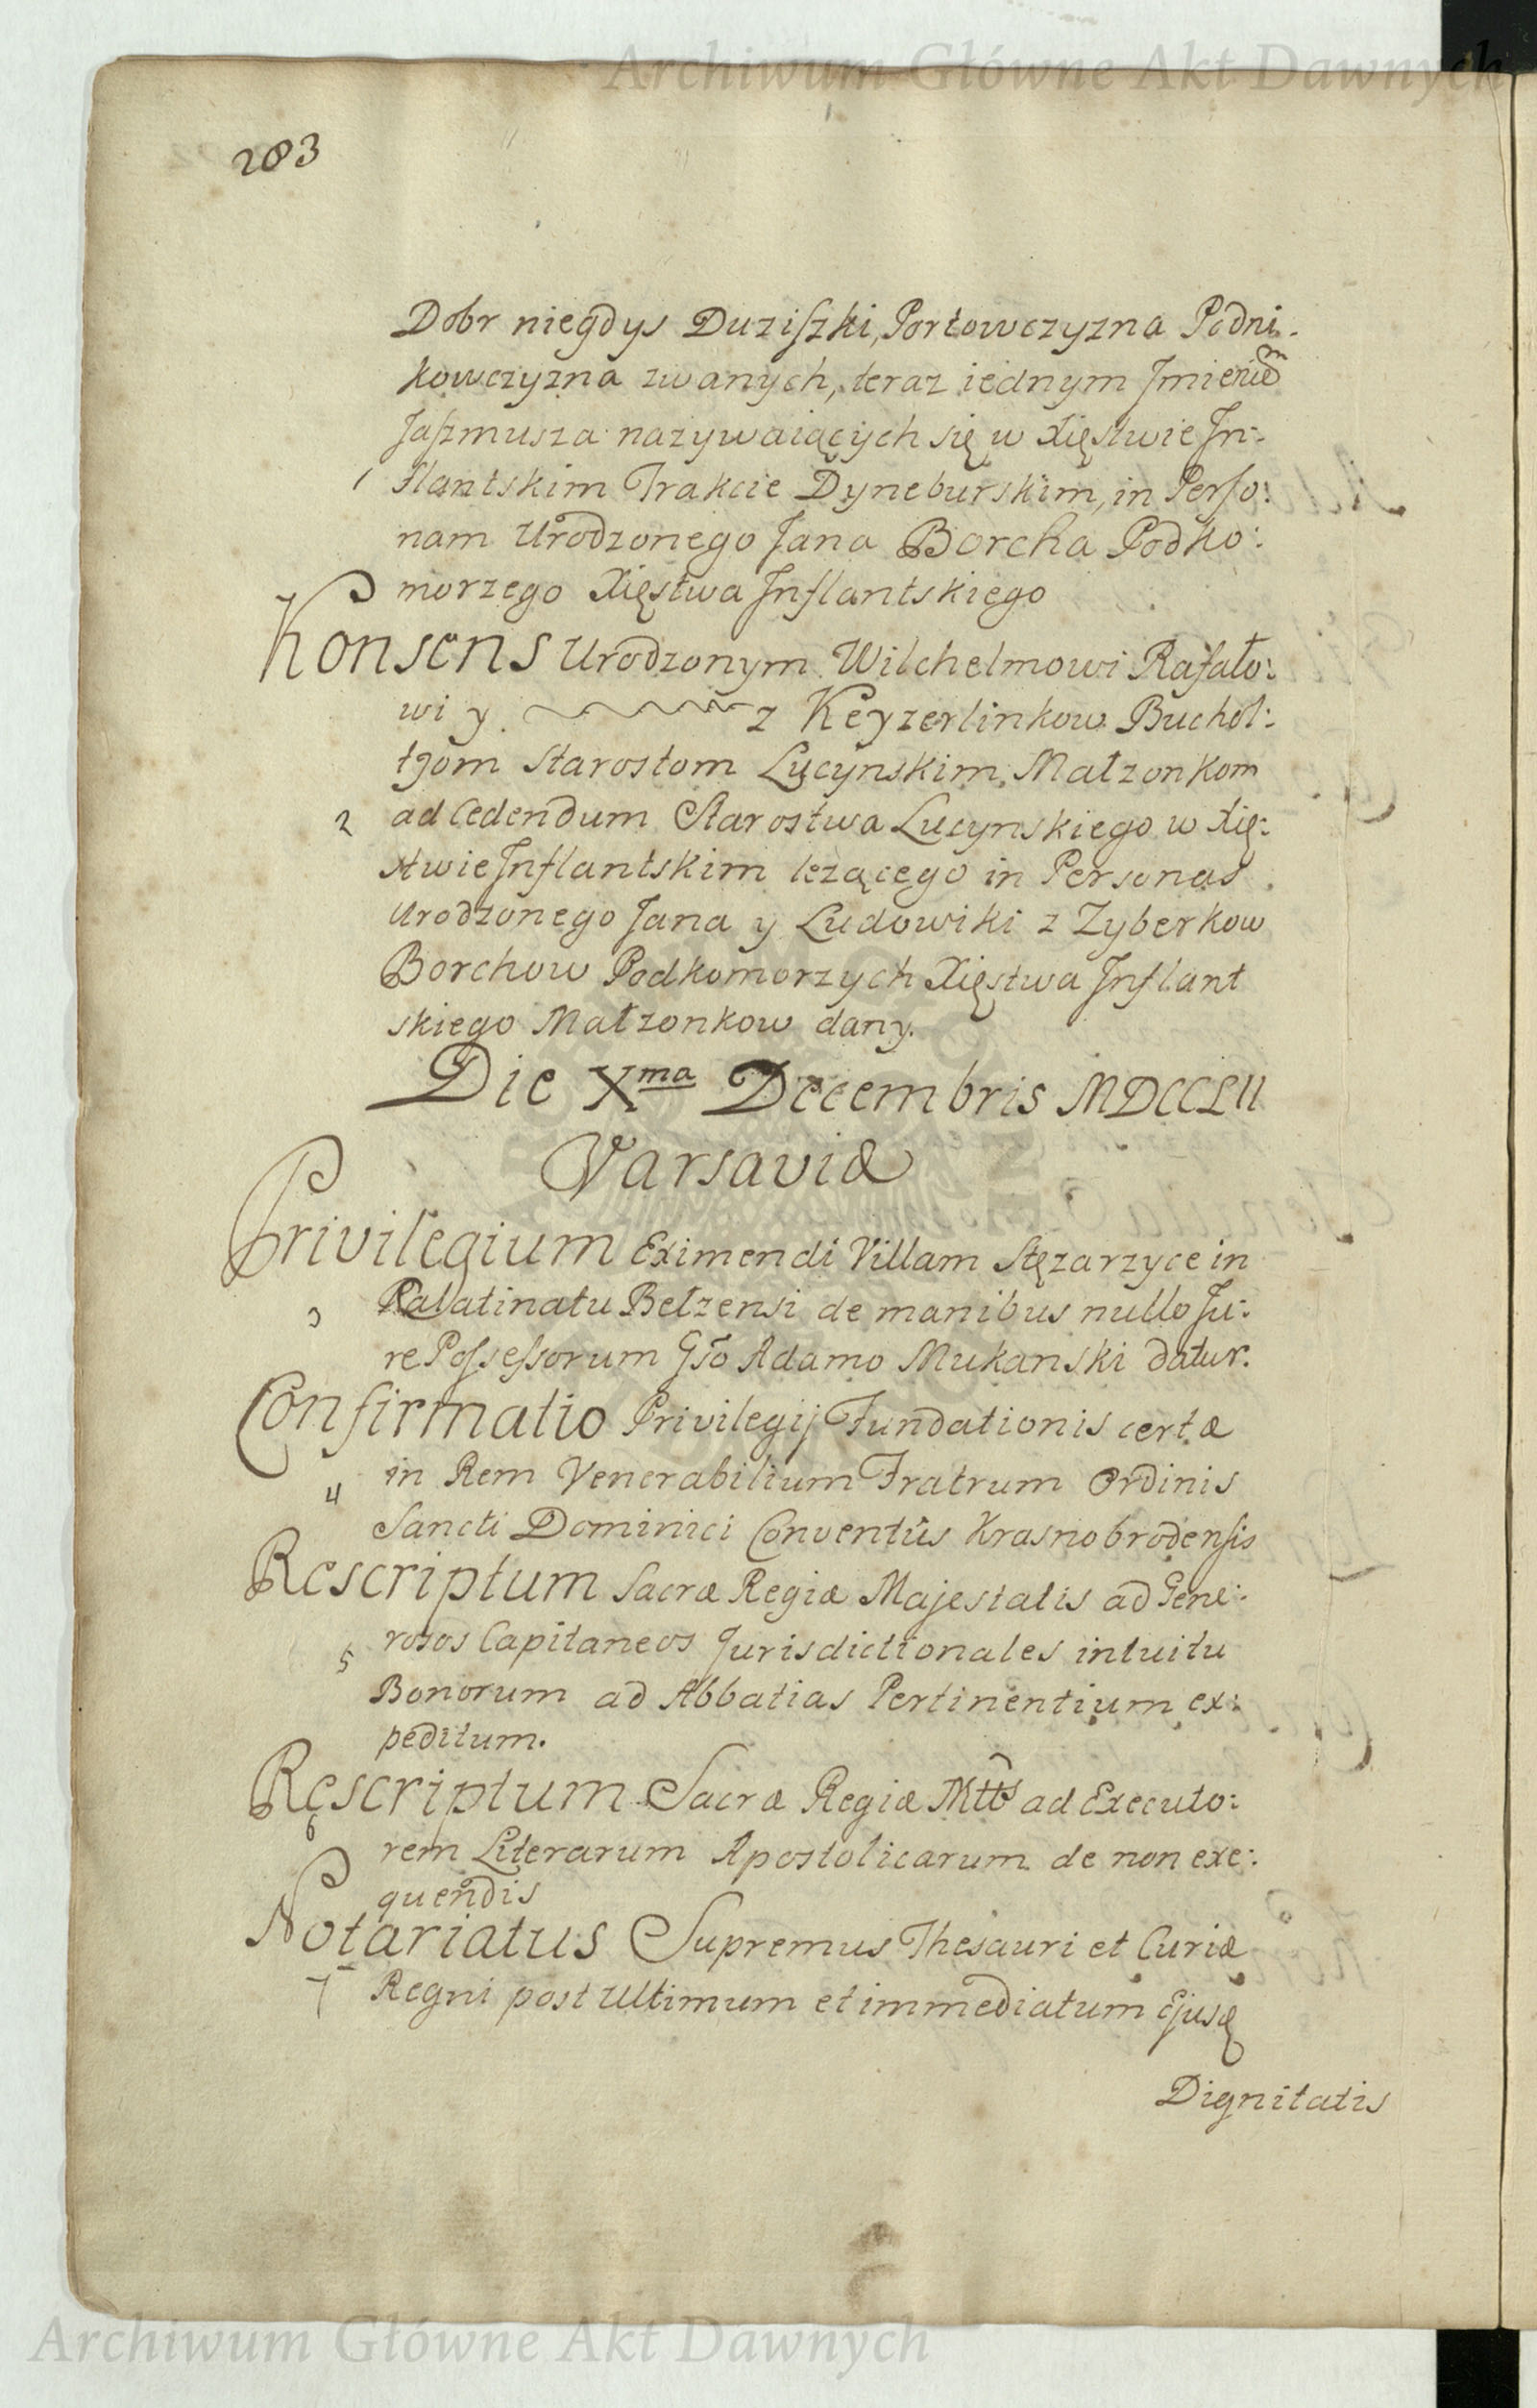 Archiwum Główne Akt Dawnych
283
Dobr niegdys Duziszki, Portowczyzna Podni-
kowczyzna zwanych, teraz iednym Jmieniem
Jaszmusza nazywaiących się w Xięstwie Jn-
1 flantskim Trakcie Dyneburskim, in Perso:
nam Urodzonego Jana Borcha Podko:
morzego Xięstwa Jnflantskiego
Konsens Urodzonym Wilchelmowi Rafało:
wi y z Keyzerlinkow Buchol:
tzom Starostom Lucynskim Małzonkom
2 ad Cedendum Starostwa Lucynskiego w Xię:
stwie Jnflantskim lezącego in Personas
Urodzonego Jana y Ludowiki z Zyberkow
Borchow Podkomorzych Xięstwa Jnflant
skiego Małzonkow dany.
Die Xma Decembris MDCCLII
Varsaviæ
Privilegium Eximendi Villam Stęzarzyce in
3 Palatinatu Bełzensi de manibus nullo Ju:
re Possessorum Gso Adamo Mukanski datur.
Confirmatio Privilegij Fundationis certæ
4 in Rem Venerabilium Fratrum Ordinis
Sancti Dominici Conventûs Krasnobrodensis
Rescriptum Sacræ Regiæ Majestatis ad Gene:
5 rosos Capitaneos Jurisdictionales intuitu
Bonorum ad Abbatias Pertinentium ex:
peditum.
Rescriptum Sacræ Regiæ Mttis ad Executo:
6 rem Literarum Apostolicarum de non exe:
quendis
Notariatus Supremus Thesauri et Curiæ
7 Regni post Ultimum et immediatum Ejusq
Dignitatis
Archiwum Główne Akt Dawnych